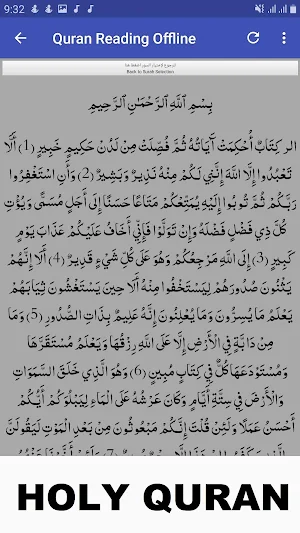 9:32
Quran Reading Offline
للرجوع لاختيار السورة اضغط هنا
Back to Surah Selection
بِسْمِ ٱللَّهِ ٱلرَّحْمَـٰنِ ٱلرَّحِيمِ
الر كِتَابٌ أُحْكِمَتْ آيَاتُهُ ثُمَّ فُصِّلَتْ مِن لَّدُنْ حَكِيمٍ خَبِيرٍ (1) أَلَّا
تَعْبُدُوا إِلَّا اللَّهَ إِنَّنِي لَكُم مِّنْهُ نَذِيرٌ وَبَشِيرٌ (2) وَأَنِ اسْتَغْفِرُوا
رَبَّكُمْ ثُمَّ تُوبُوا إِلَيْهِ يُمَتِّعْكُم مَّتَاعًا حَسَنًا إِلَى أَجَلٍ مُّسَمًّى وَيُؤْتِ
كُلَّ ذِي فَضْلٍ فَضْلَهُ وَإِن تَوَلَّوْا فَإِنِّي أَخَافُ عَلَيْكُمْ عَذَابَ يَوْمٍ
كَبِيرٍ (3) إِلَى اللَّهِ مَرْجِعُكُمْ وَهُوَ عَلَى كُلِّ شَيْءٍ قَدِيرٌ (4) أَلَا إِنَّهُمْ
يَثْنُونَ صُدُورَهُمْ لِيَسْتَخْفُوا مِنْهُ أَلَا حِينَ يَسْتَغْشُونَ ثِيَابَهُمْ
يَعْلَمُ مَا يُسِرُّونَ وَمَا يُعْلِنُونَ إِنَّهُ عَلِيمٌ بِذَاتِ الصُّدُورِ (5) وَمَا
مِن دَابَّةٍ فِي الْأَرْضِ إِلَّا عَلَى اللَّهِ رِزْقُهَا وَيَعْلَمُ مُسْتَقَرَّهَا
وَمُسْتَوْدَعَهَا كُلٌّ فِي كِتَابٍ مُّبِينٍ (6) وَهُوَ الَّذِي خَلَقَ السَّمَوَاتِ
وَالْأَرْضَ فِي سِتَّةِ أَيَّامٍ وَكَانَ عَرْشُهُ عَلَى الْمَاءِ لِيَبْلُوَكُمْ أَيُّكُمْ
أَحْسَنُ عَمَلًا وَلَئِن قُلْتَ إِنَّكُم مَّبْعُوثُونَ مِن بَعْدِ الْمَوْتِ لَيَقُولَنَّ
HOLY QURAN